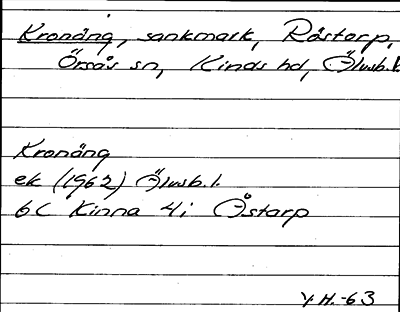 Kronäng, sankmark, Råstorp,
Örsås sn, Kinds hd, Älvsb.l.
Kronäng
ek (1962) Älvsb.l.
6C Kinna 4i Åstarp
Y H.-63